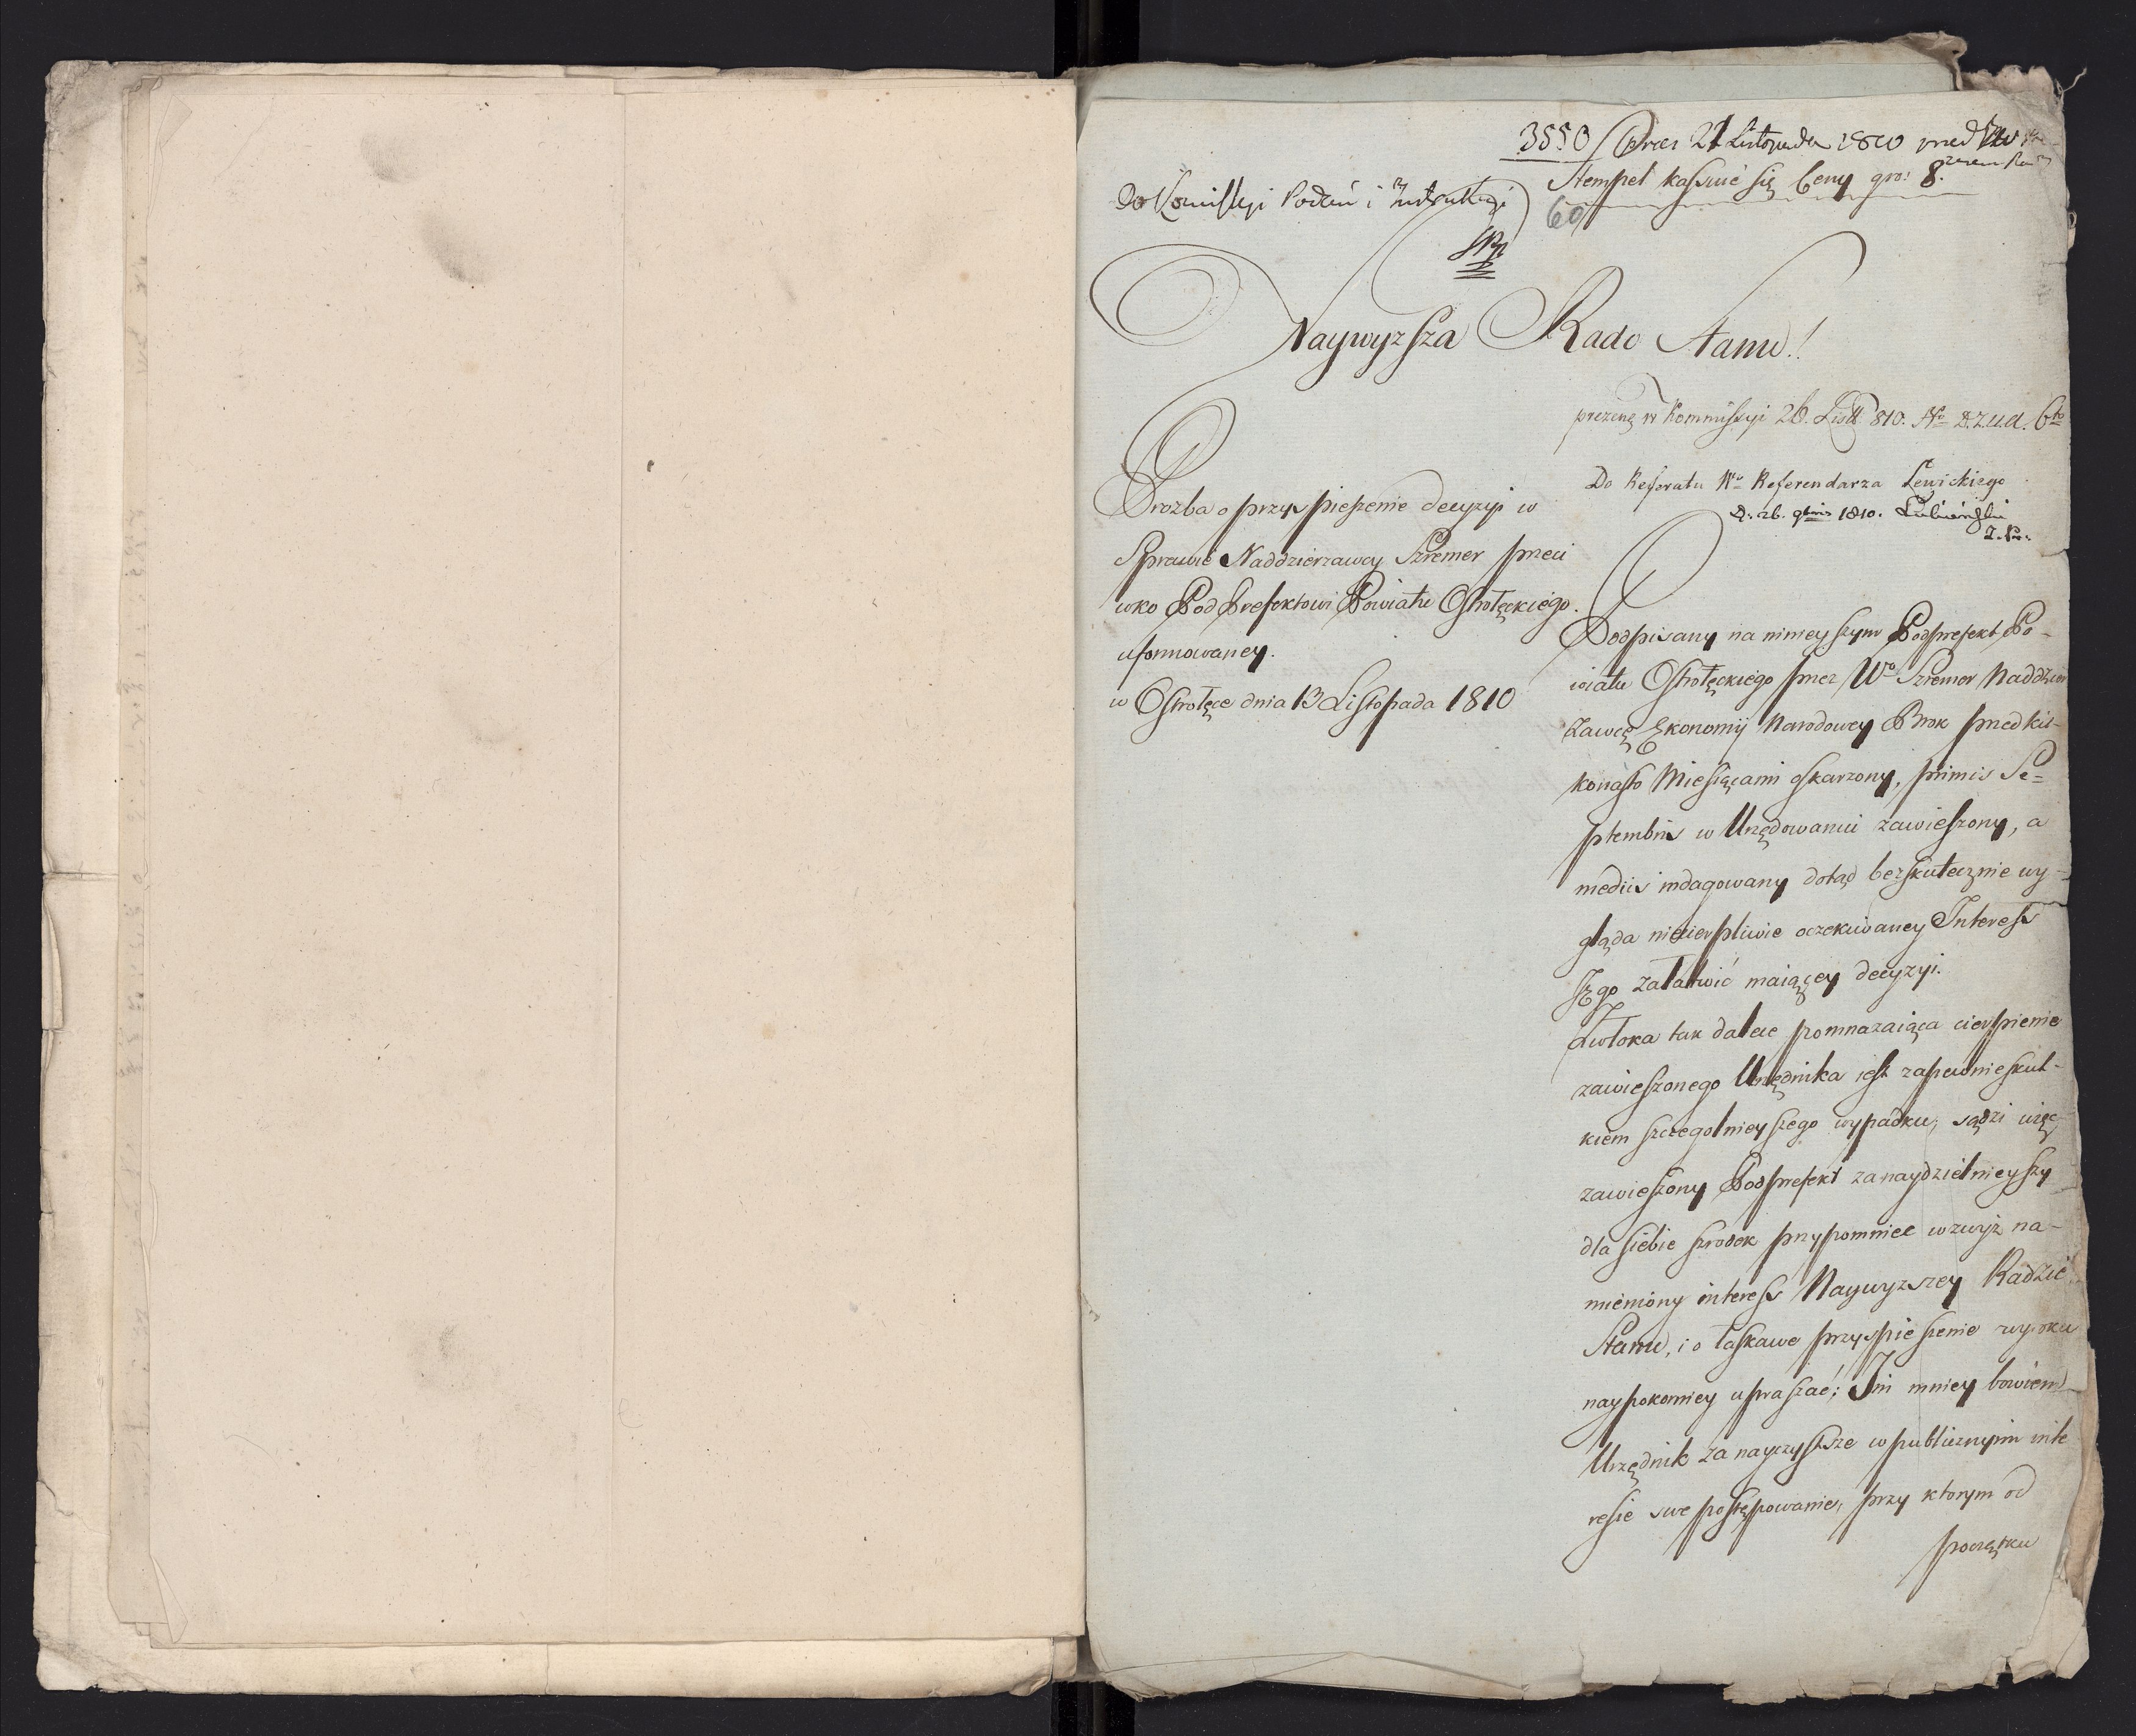 3550 Prez 21 Listopada 1810 przed
Stempel kassuie się Ceny gro: 8.
Do Kommissyi Podań i Instrukcyi
60
Naywyzsza Rado Stanu!
prezent w Kommissyi 26. List 810. No D.Z.U.A. 6to
Do Referatu Wo Referendarza Lewickiego
D. 26. 9bris 1810. Lubieński
Prozba o przyspieszenie decyzyi w
Sprawie Naddzierzawcy Szremer przeci
wko Pod Prefektowi Powiatu Ostrołęckiego
uformowaney.
w Ostrołęce dnia 13 Listopada 1810
Podpisany na ninieyszym Podprefekt Po-
wiatu Ostrołęckiego przez Wo Szremer Naddzier
zawcę Ekonomij Narodowey Brok przed kil-
konasto Miesięcami oskarzony, primis Se=
ptembris w Urzędowaniu zawieszony, a
mediis indagowany dotąd bezskutecznie wy-
gląda niecierpliwie oczekiwaney Interess
Jego załatwić maiącey decyzyi.
Zwłoka tak dalece pomnazaiąca cierpienie
zawieszonego Urzędnika iest zapewnie skut-
kiem szczegolnieyszego wypadku, sądzi więc
zawieszony Podprefekt za naydzielnieyszy
dla siebie szrodek przypomniec wzwyż na-
mieniony interess Naywyzszey Radzie
Stanu, i o łaskawe przyspieszenie wyroku
naypokorniey upraszać; Im mniey bowiem
Urzędnik za nayczystsze w publicznym inte
resie swe postępowanie, przy ktorym od
początku